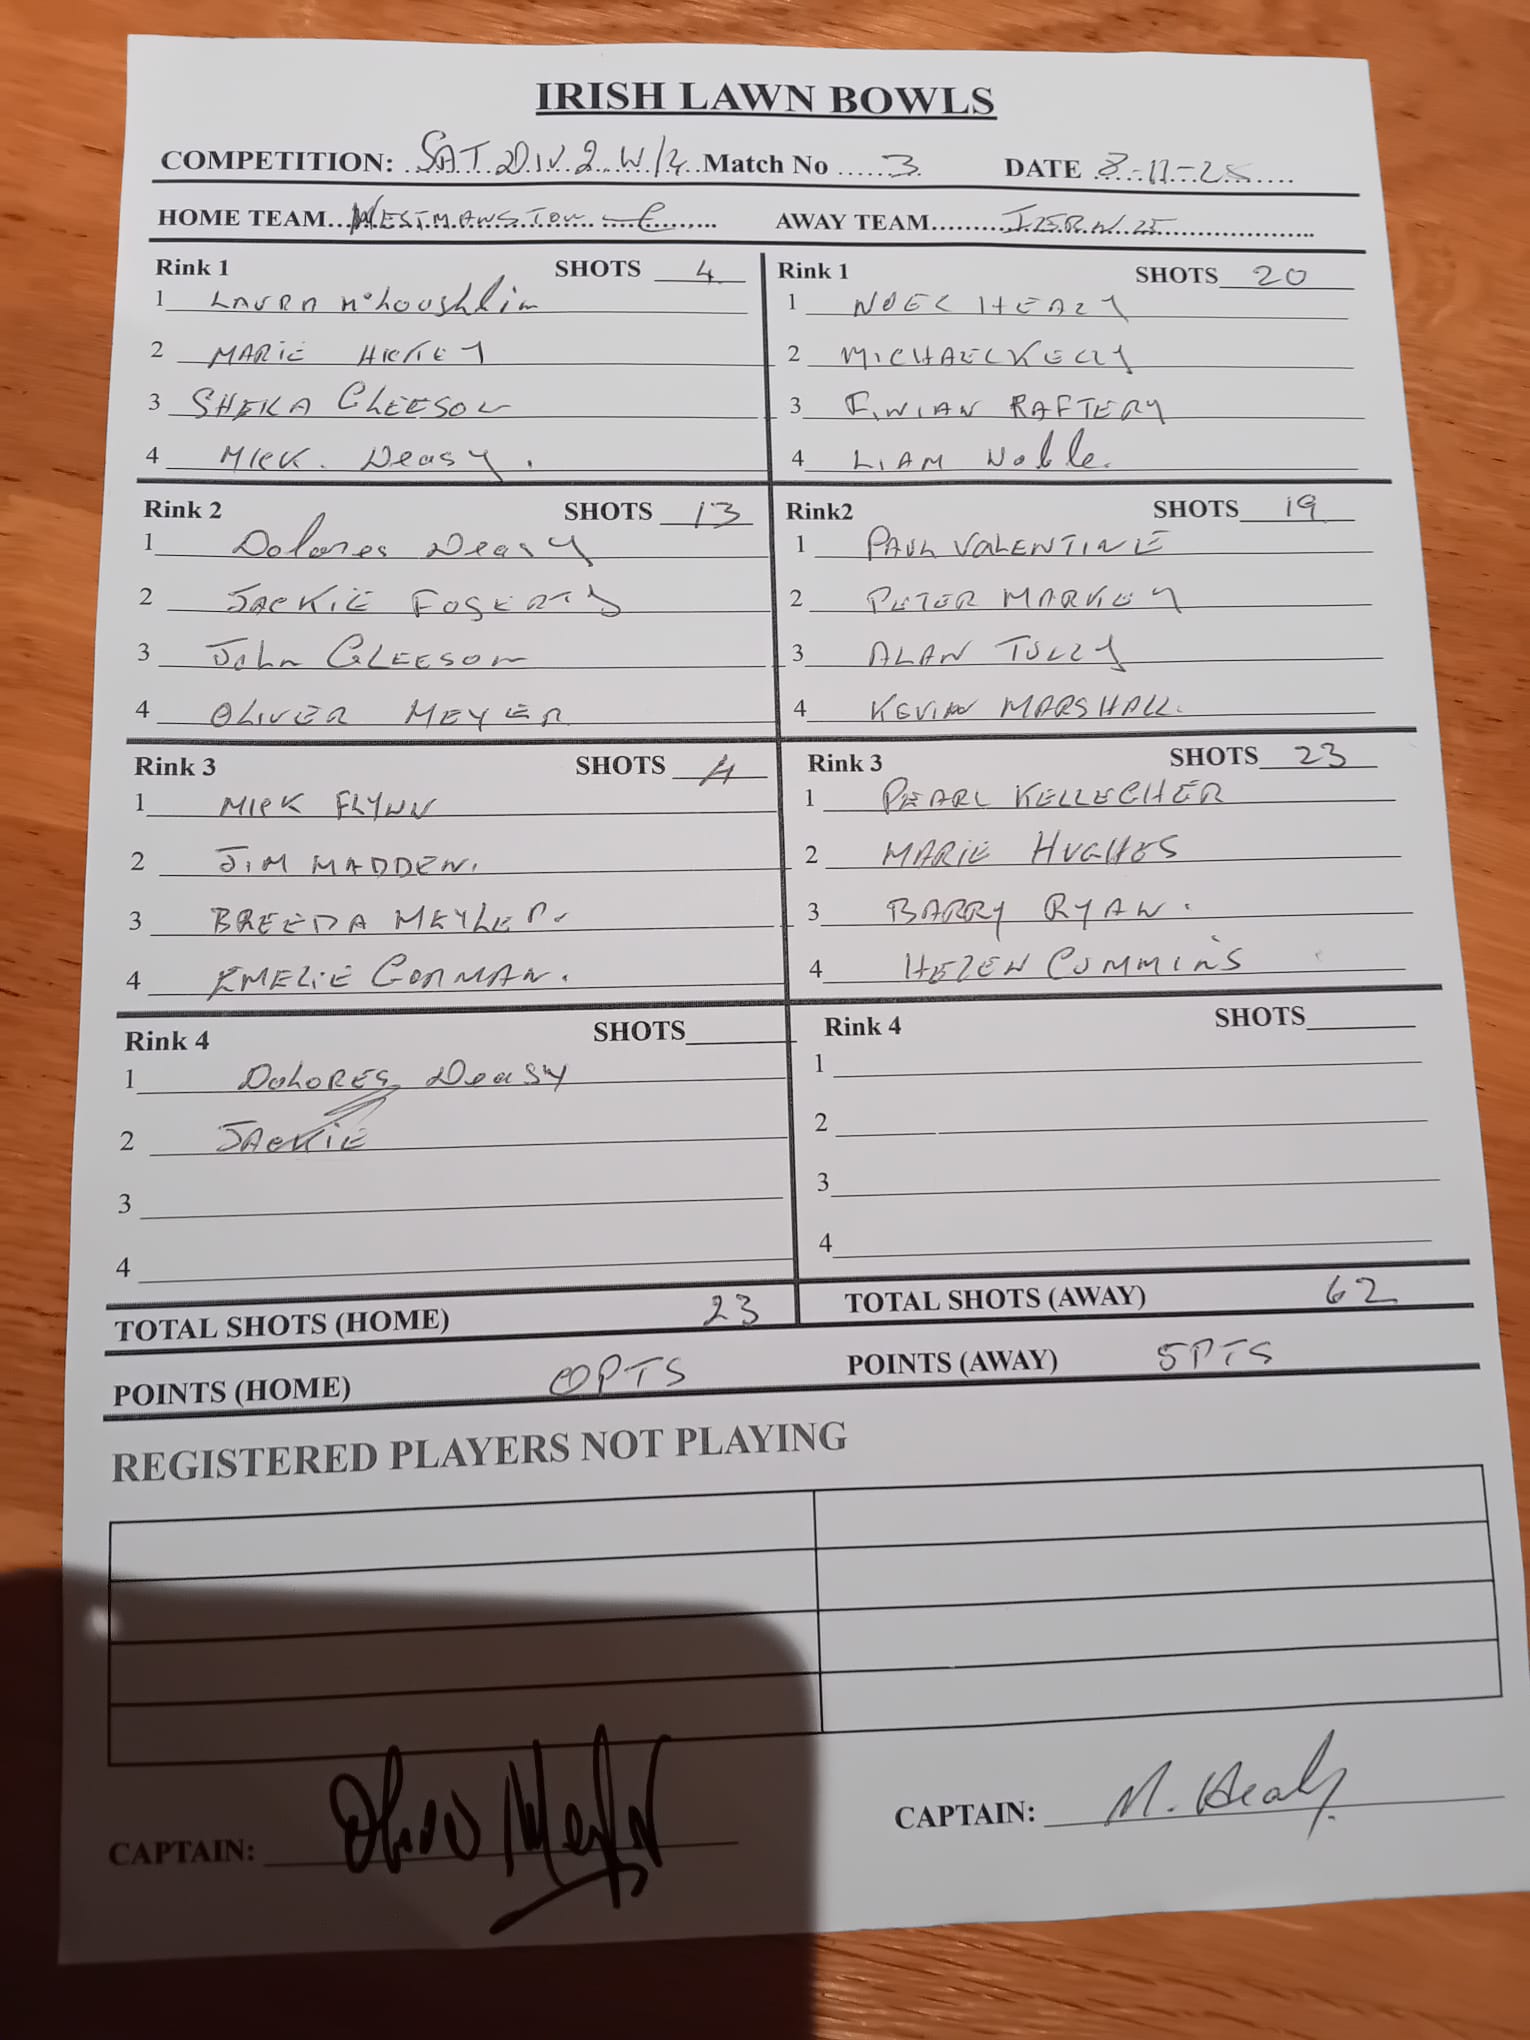 IRISH LAWN BOWLS
COMPETITION: SAT DIV. 2 W/4 Match No 3 DATE 8-11-25
HOME TEAM WESTMANSTOWN AWAY TEAM
Rink 1 SHOTS 4
1 LAURA
2 MARIE HICKEY
3 SHEILA GLEESON
4 MICK. Deasy.
Rink 1 SHOTS 20
1 NOEL HEALY
2 MICHAEL KELLY
3 FINIAN RAFTERY
4 LIAM Noble.
Rink 2 SHOTS 13
1 Dolores Deasy
2 JACKIE FOGERTY
3 John GLEESON
4 OLIVER MEYLER
Rink2 SHOTS 19
1 PAUL VALENTINE
2 PETER MARKEY
3 ALAN TULLY
4 KEVIN MARSHALL.
Rink 3 SHOTS
1 MICK FLYNN
2 JIM MADDEN.
3 BREEDA MEYLER.
4 EMELIE GORMAN.
Rink 3 SHOTS 23
1 PEARL KELLEGHER
2 MARIE HUGHES
3 BARRY RYAN.
4 HELEN CUMMINS
Rink 4 SHOTS
1 DOLORES Deasy
2 JACKIE
3
4
Rink 4 SHOTS
1
2
3
4
TOTAL SHOTS (HOME) 23 TOTAL SHOTS (AWAY) 62
POINTS (HOME) 0PTS POINTS (AWAY) 5PTS
REGISTERED PLAYERS NOT PLAYING
CAPTAIN: Oliver Meyler CAPTAIN: M. Healy